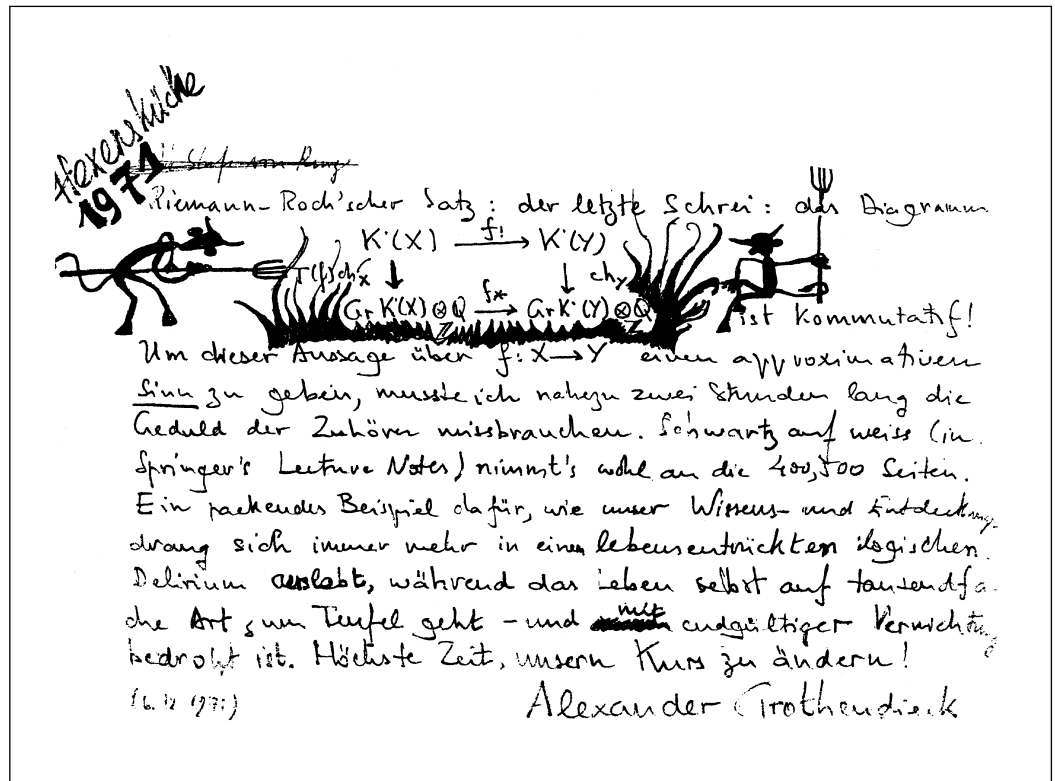 Hexenküche
1971
Riemann-Roch'scher Satz: der letzte Schrei: das Diagramm
K˙(X) f! → K˙(Y)
T(f)ch_X ↓ ↓ ch_Y
Gr K˙(X) ⊗_Z Q f* → Gr K˙(Y) ⊗_Z Q
ist kommutatif!
Um dieser Aussage über f: X → Y einen approximativen
Sinn zu geben, musste ich nahezu zwei Stunden lang die
Geduld der Zuhörer missbrauchen. Schwartz auf weiss (in
Springer's Lecture Notes) nimmt's wohl an die 400, 500 Seiten.
Ein packendes Beispiel dafür, wie unser Wissens- und Entdeckung-
drang sich immer mehr in einem lebensentrückten logischen
Delirium auslebt, während das Leben selbst auf tausendfa-
che Art zum Teufel geht - und mit endgültiger Vernichtung
bedroht ist. Höchste Zeit, unsern Kurs zu ändern!
Alexander Grothendieck